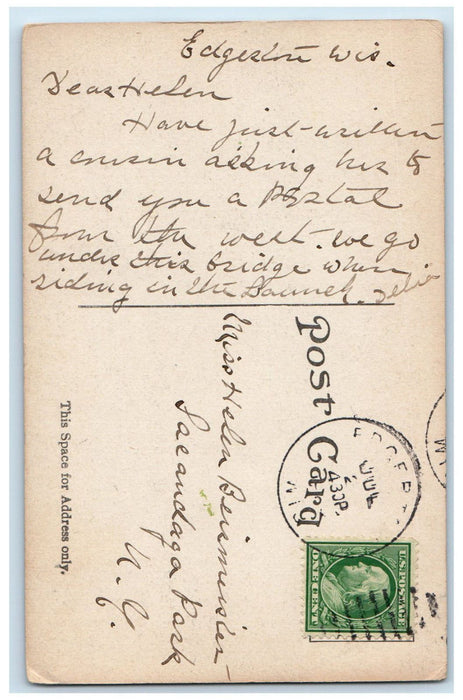 Edgerton Wis.
Dear Helen
Have just written
a cousin asking her to
send you a Postal
from the west. we go
under this bridge when
riding in the Launch.
Post Card
Miss Helen Beismeister
Sacandaga Park
N. Y.
This Space for Address only.
EDGERT
JUL
2
430P.
WIS
U.S. POSTAGE
ONE CENT